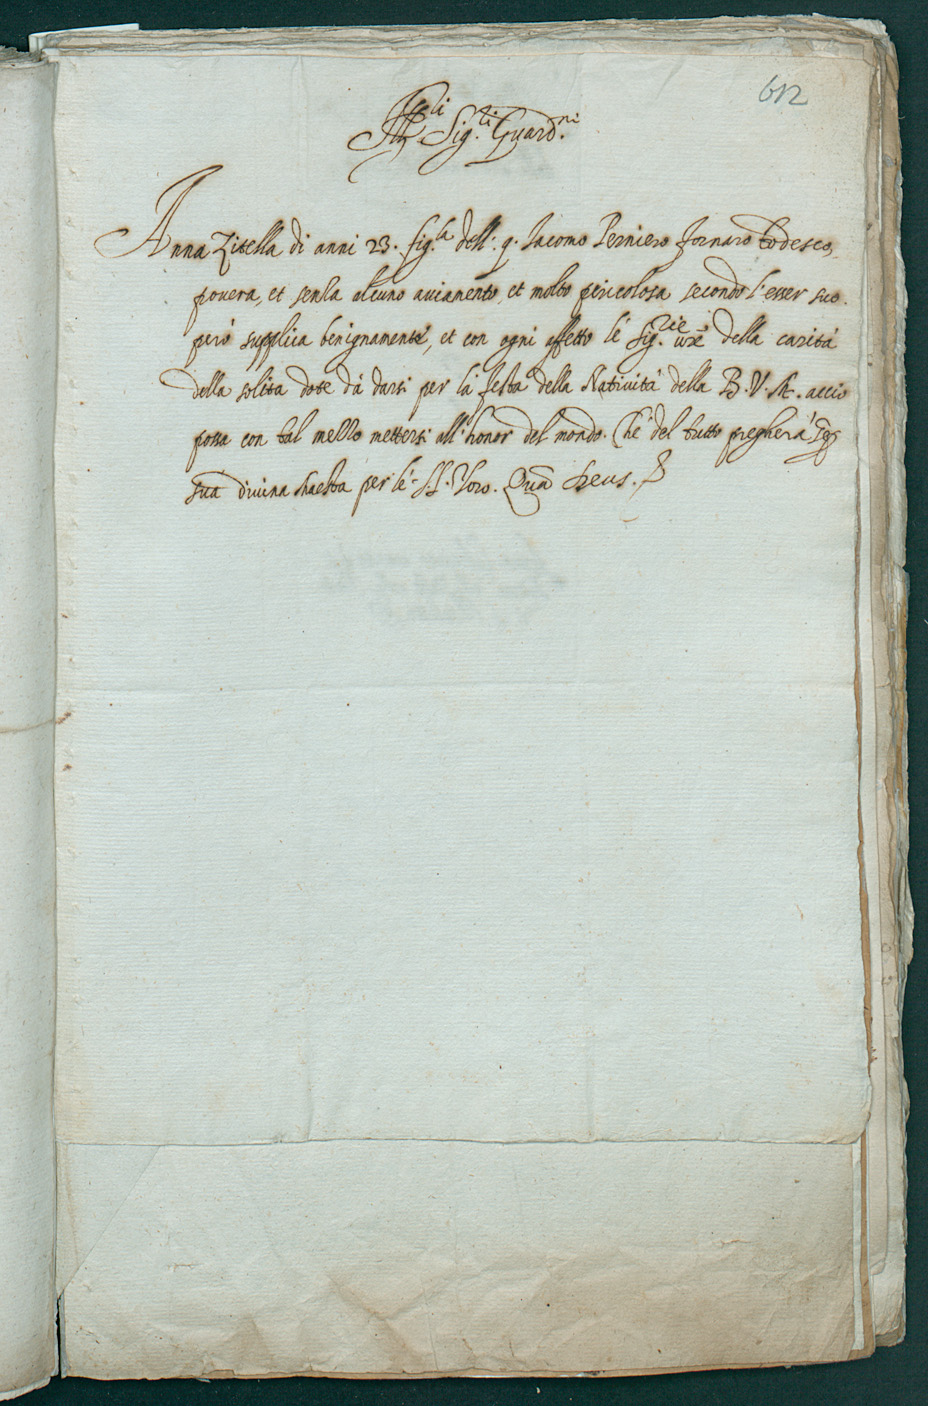 612
Ill.li Sig.ri Guard.ni
Anna Zitella di anni 23. fig.la dell: q. Iacomo Perniero fornaro todesco,
povera, et senza alcuno aviamento, et molto pericolosa secondo l'esser suo.
però supplica benignamente, et con ogni affetto le Sig.rie vrē della carità
della solita dote dà darsi per la festa della Natività della B. V. M. acciò
possa con tal mezzo mettersi all'honor del mondo. Che del tutto pregherà
sua divina Maestà per le SS. loro. Quā Deus.